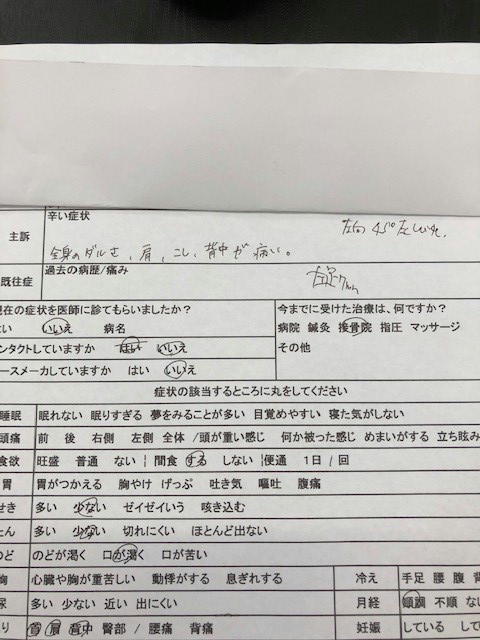 辛い症状
主訴
全身のダルさ、肩、こし、背中が痛い。
左向 45°
既往症 過去の病歴/痛み
現在の症状を医師に診てもらいましたか？
いいえ 病名
今までに受けた治療は、何ですか？
病院 鍼灸 接骨院 指圧 マッサージ
その他
ンタクトしていますか はい いいえ
ースメーカしていますか はい いいえ
症状の該当するところに丸をしてください
睡眠 眠れない 眠りすぎる 夢をみることが多い 目覚めやすい 寝た気がしない
頭痛 前 後 右側 左側 全体 /頭が重い感じ 何か被った感じ めまいがする 立ち眩み
食欲 旺盛 普通 ない ¦ 間食 する しない ¦便通 1日 / 回
胃 胃がつかえる 胸やけ げっぷ 吐き気 嘔吐 腹痛
せき 多い 少ない ゼイゼイいう 咳き込む
たん 多い 少ない 切れにくい ほとんど出ない
のど のどが渇く 口が渇く 口が苦い
胸 心臓や胸が重苦しい 動悸がする 息ぎれする 冷え 手足 腰 腹 背
尿 多い 少ない 近い 出にくい 月経 順調 不順 な
り 首 肩 背中 臀部 / 腰痛 背痛 妊娠 している して